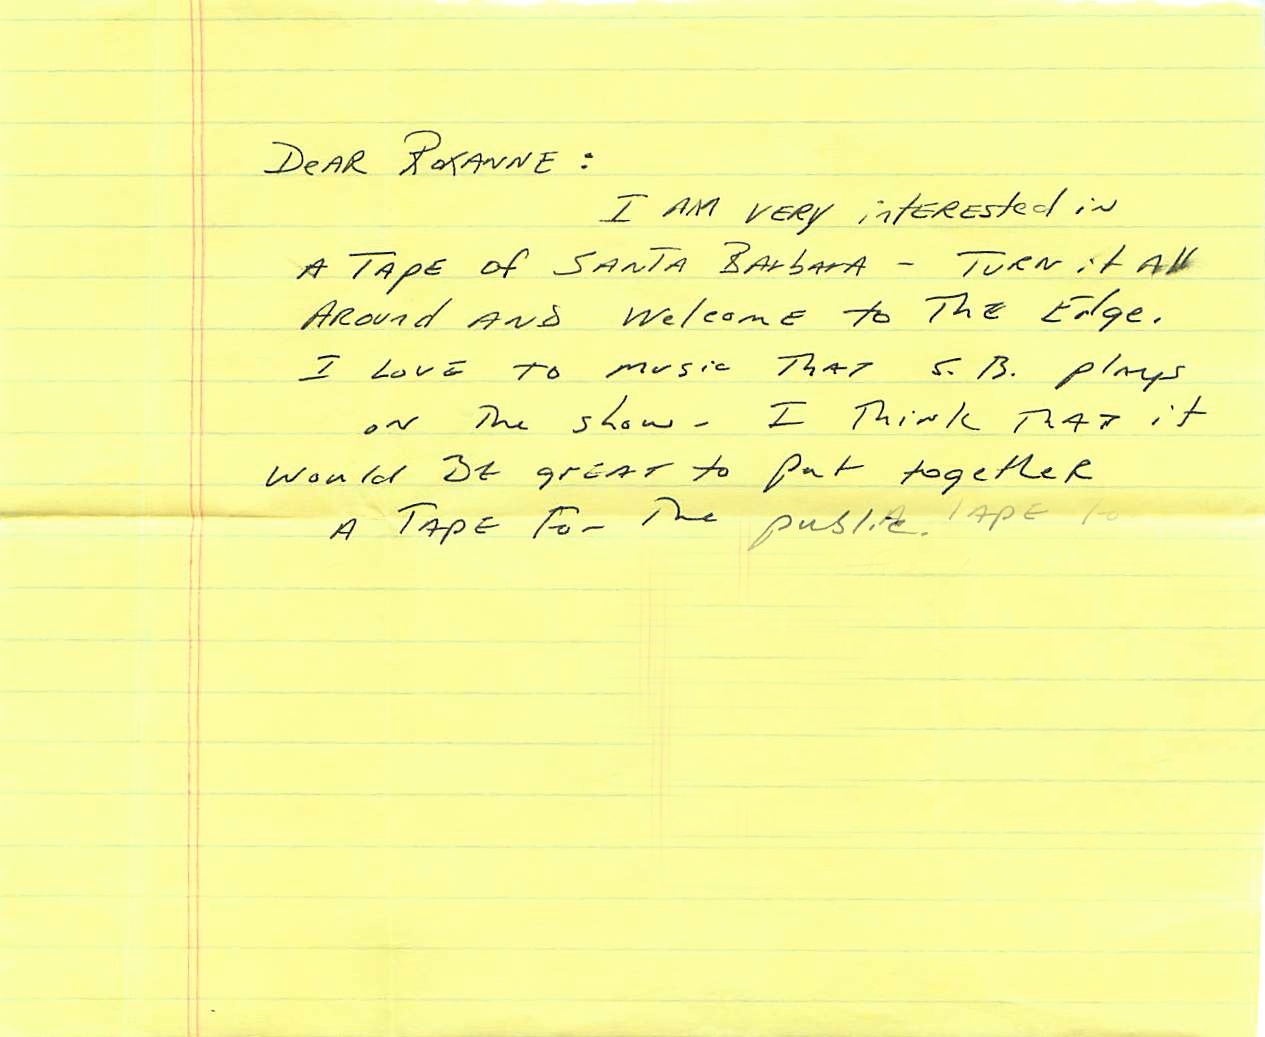 Dear Roxanne:
I AM VERY interested in
A TAPE of SANTA BArbarA - TURN it All
Around AND Welcome to The Edge.
I LOVE TO music THAT S. B. plays
on The show - I Think THAT it
Would BE grEAT to put together
A TAPE For The public.
A TAPE to